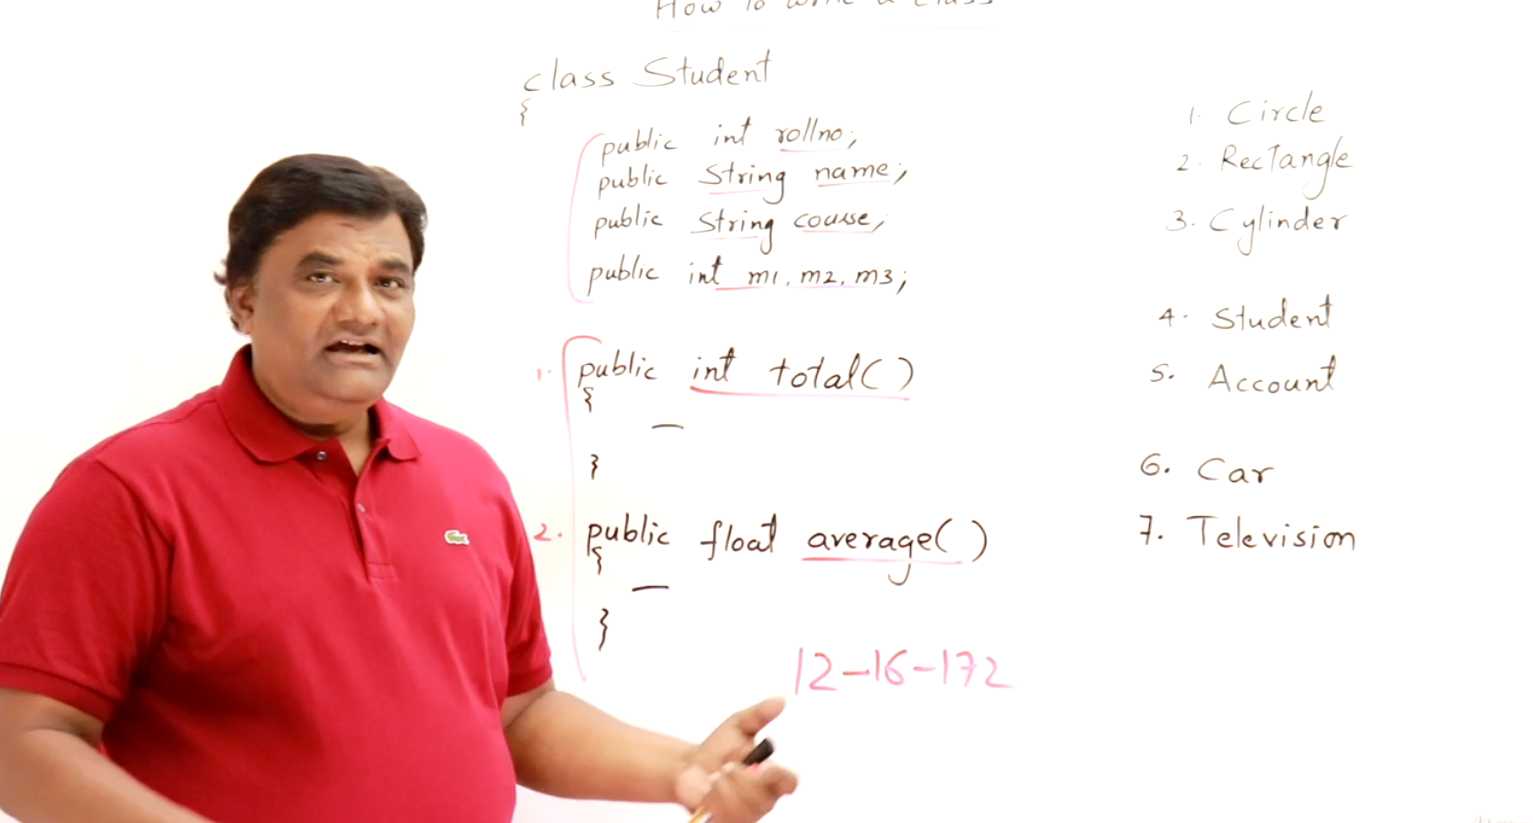 How to write a class
class Student
{
public int rollno;
public String name;
public String course;
public int m1, m2, m3;
1. public int total()
{
—
}
2. public float average()
{
—
}
12-16-172
1. Circle
2. Rectangle
3. Cylinder
4. Student
5. Account
6. Car
7. Television